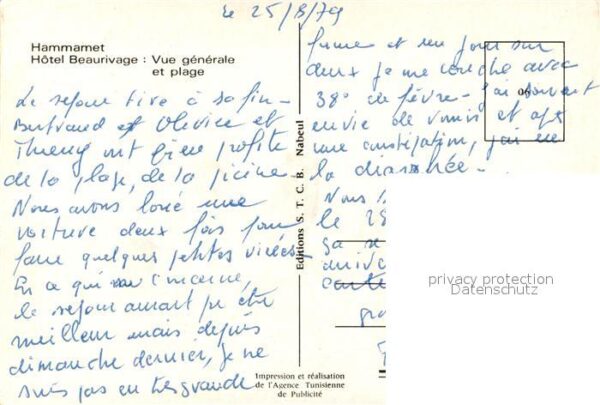 le 25/8/79
Hammamet
Hôtel Beaurivage : Vue générale
et plage
Le séjour tire à sa fin -
Bertrand et Olivier et
Thierry ont bien profité
de la plage, de la piscine -
Nous avons loué une
voiture deux fois pour
faire quelques petites virées -
En ce qui me concerne,
le séjour aurait pu être
meilleur mais depuis
dimanche dernier, je ne
suis pas en très grande
Editions S. T. C. B. Nabeul
forme et un jour sur
deux je me couche avec
38° de fièvre - j'ai souvent
envie de vomir et après
une constipation, j'ai eu
la diarrhée -
Nous
le 28
ça se
conte
06
privacy protection
Datenschutz
Impression et réalisation
de l'Agence Tunisienne
de Publicité